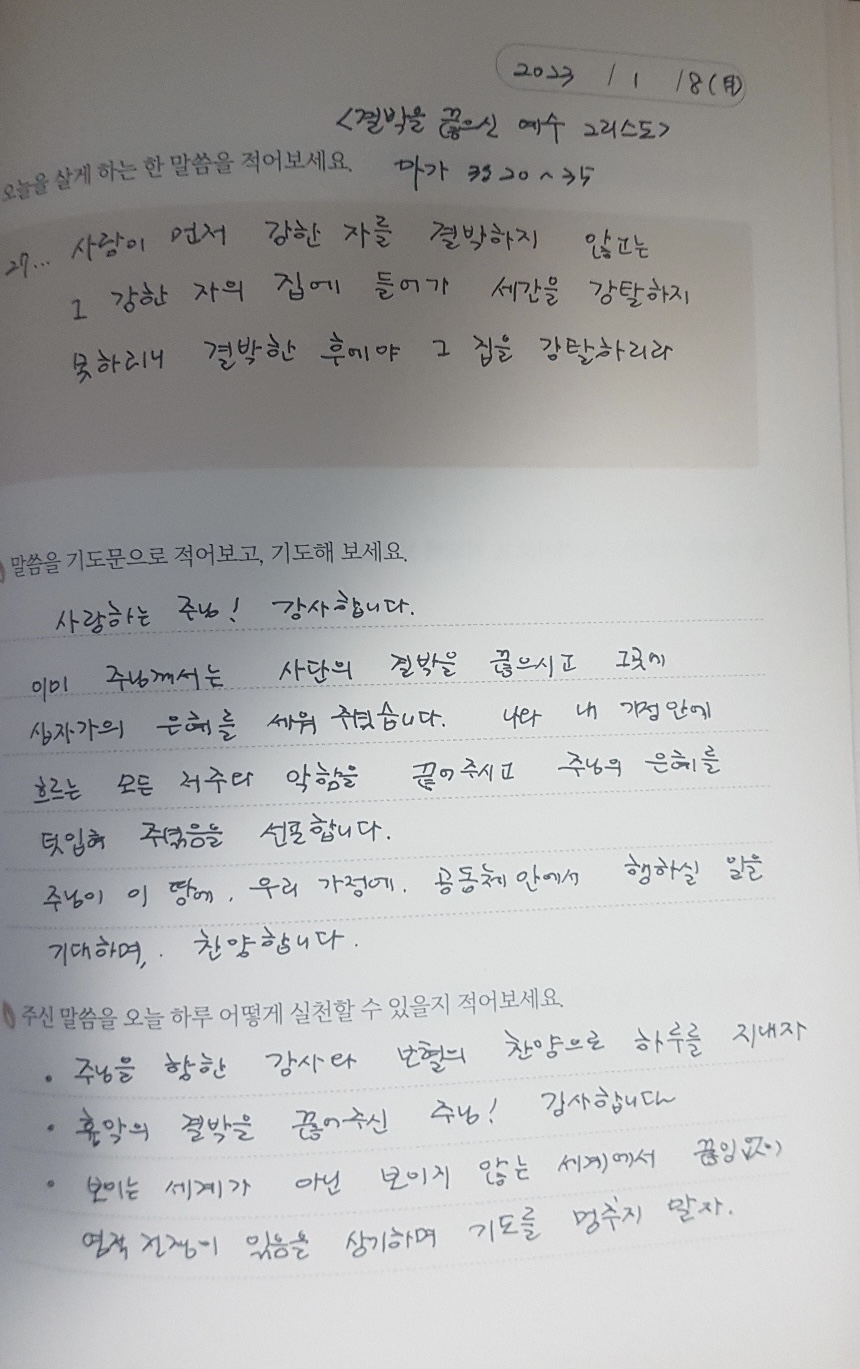 2023 / 1 / 8 (月)
<결박을 끊으신 예수 그리스도>
오늘을 살게 하는 한 말씀을 적어보세요.
마가 3:20~35
27... 사람이 먼저 강한 자를 결박하지 않고는
그 강한 자의 집에 들어가 세간을 강탈하지
못하리니 결박한 후에야 그 집을 강탈하리라
말씀을 기도문으로 적어보고, 기도해 보세요.
사랑하는 주님! 감사합니다.
이미 주님께서는 사단의 결박을 끊으시고 그곳에
십자가의 은혜를 세워 주셨습니다. 나와 내 가정안에
흐르는 모든 저주와 악함을 끊어주시고 주님의 은혜를
덧입혀 주셨음을 선포합니다.
주님이 이 땅에, 우리 가정에, 공동체 안에서 행하실 일을
기대하며, 찬양합니다.
주신 말씀을 오늘 하루 어떻게 실천할 수 있을지 적어보세요.
• 주님을 향한 감사와 보혈의 찬양으로 하루를 지내자
• 흉악의 결박을 끊어주신 주님! 감사합니다~
• 보이는 세계가 아닌 보이지 않는 세계에서 끊임없이
영적 전쟁이 있음을 상기하며 기도를 멈추지 말자.